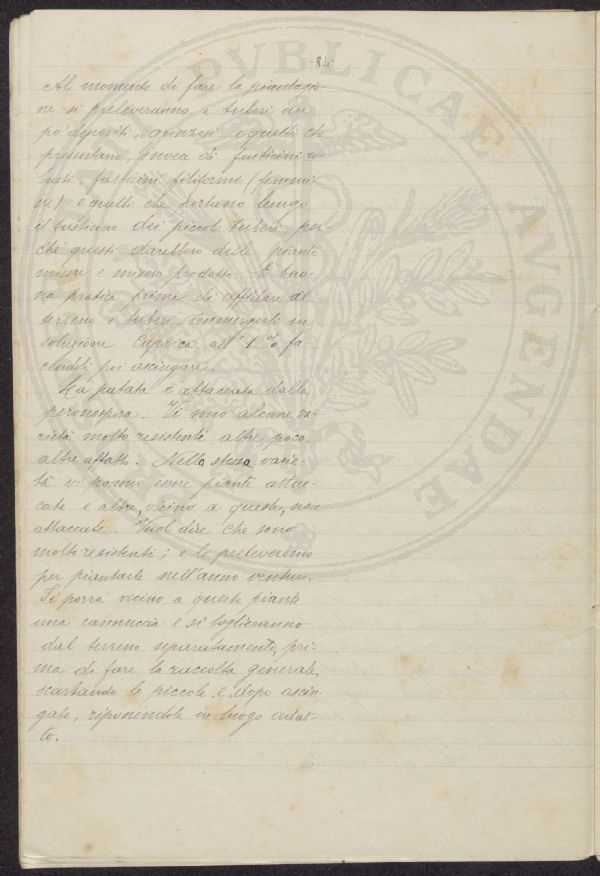 -84-
PVBLICAE
AVGENDAE
Al momento di fare la piantagio-
ne si preleveranno i tuberi
presentano, invece di fusticini ro-
busti, fusticini filiformi (femmi-
ne) e quelli che portano lungo
il fusticino dei piccoli tuberi per-
chè questi darebbero delle piante
misere e misero prodotto. È buo-
na pratica prima di affidare al
terreno i tuberi, immergerli in
soluzione cuprica all'1% fa-
cendoli poi asciugare.
La patata è attaccata dalla
peronospora. Vi sono alcune va-
rietà molto resistenti altre poco
altre affatto. Nella stessa varie-
tà vi possono essere piante attac-
cate e altre, vicino a queste, non
attaccate. Vuol dire che sono
molto resistenti; e le preleveremo
per piantarle nell'anno venturo.
Si porrà vicino a queste piante
una cannuccia e si toglieranno
dal terreno separatamente, pri-
ma di fare la raccolta generale,
scartando le piccole e, dopo asciu-
gate, riponendole in luogo adat-
to.